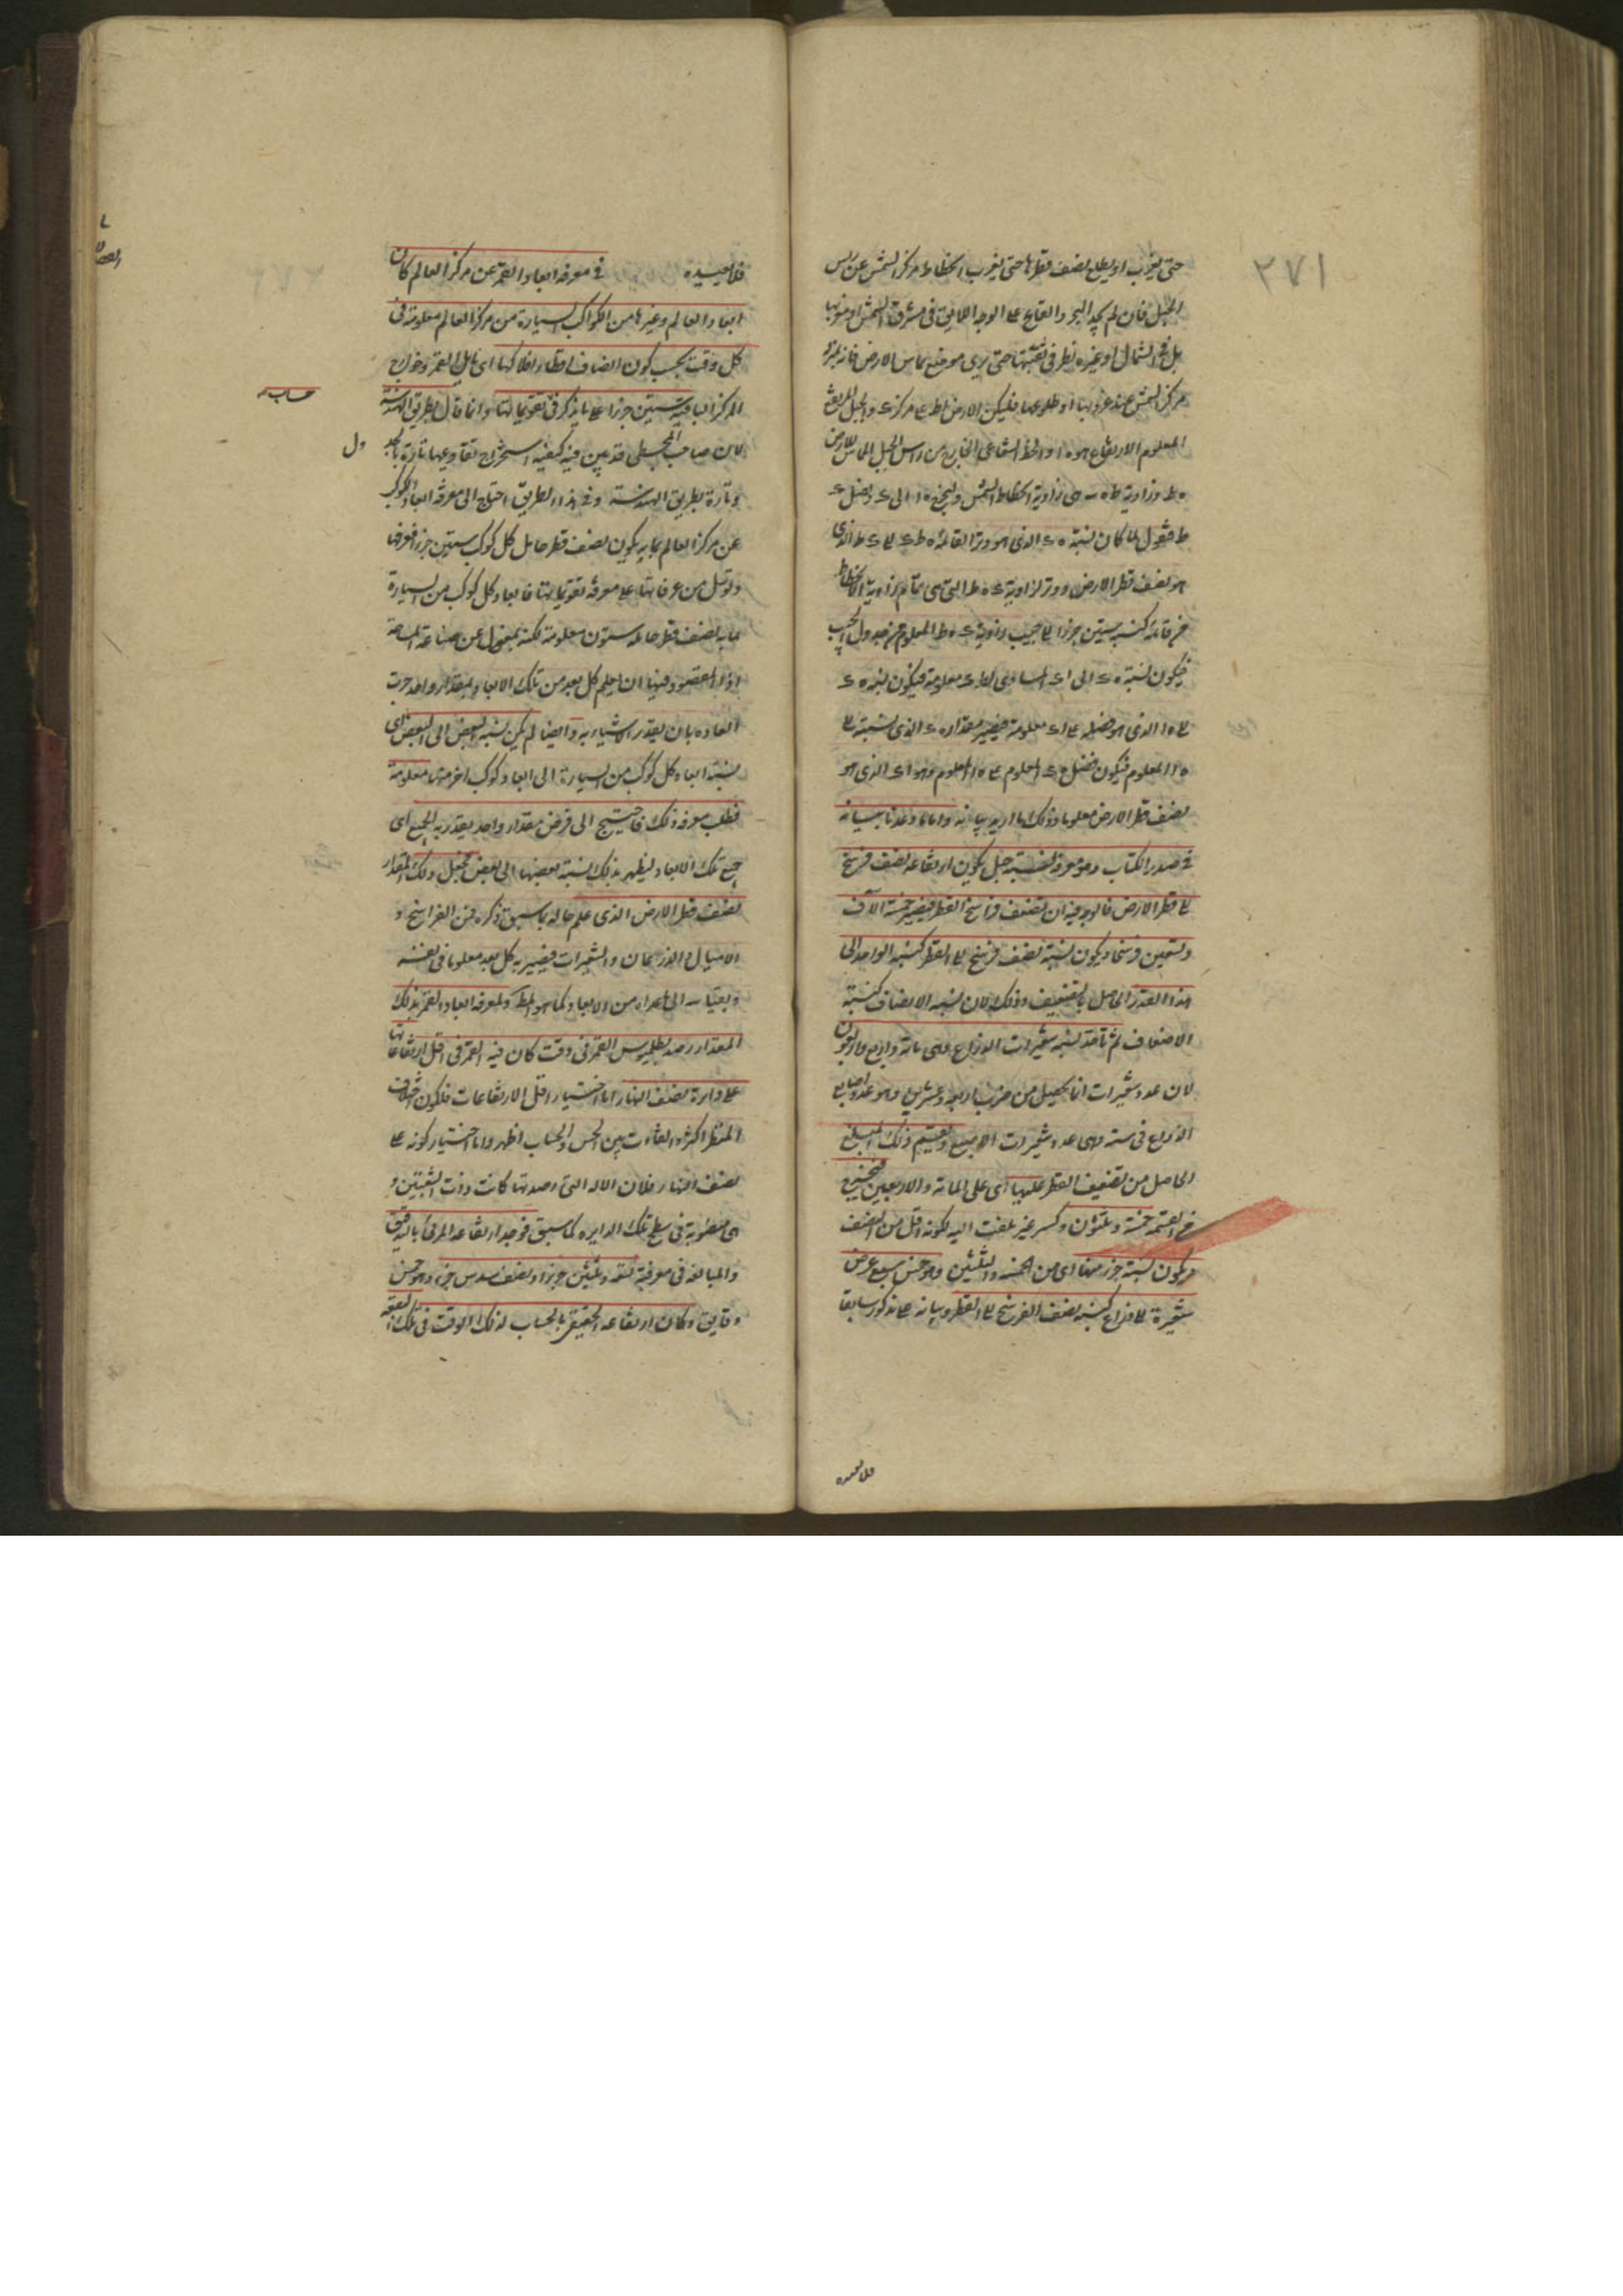 ٢٧١
حتى يغرب او يطلع نصف قطرها حتى يغرب انحطاط مركز الشمس عن راس
الجبل فان لم يجد البحر والقاع على الوجه اللايق فى مشرق الشمس او مغربها
بل فى الشمال او غيره نظر فى نقبتها حتى يرى موضع يماس الارض
مركز الشمس عند غروبها او طلوعها فليكن الارض ا ط على مركز ء والجبل المرتفع
المعلوم الارتفاع هو ه ا والخط الشعاعى الخارج من راس الجبل المماس للارض
ه ط وزاوية هى زاوية انحطاط الشمس وليخرج ه ا الى ء ونصل ء
ط فنقول لما كان نسبة ه ء الذى هو وتر القائمة ه ط ء الى ء ط الذى
هو نصف قطر الارض ووتر لزاوية ء ه ط التى هى تمام زاوية الانحطاط
من قائمة كنسبة ستين جزءا الى جيب زاوية ء ه ط المعلوم من جدول الجيب
فيكون نسبة ه ء الى ا ء المساوى لط ء معلومة فيكون نسبة ه ء
الى ه ا الذى هو فضله على ا ء معلومة فيصير مقدار ه ء الذى نسبته الى
ه ا المعلوم فيكون فضل ه ء المعلوم على ه ا المعلوم وهو ا ء الذى هو
نصف قطر الارض معلوما وذلك ما اريد بيانه واما ما وعدنا ببيانه
فى صدر الكتاب وهو معرفة نسبة جبل يكون ارتفاعه نصف فرسخ
الى قطر الارض فالوجه فيه ان نضعف فراسخ القطر فيصير خمسة الاف
وتسعين فرسخا ويكون نسبة نصف فرسخ الى القطر كنسبة الواحد الى
هذا القدر الحاصل بالتضعيف وذلك لان نسبة الانصاف كنسبة
الاضعاف ثم نأخذ نسبة شعيرات الذراع وهى مائة واربع واربعون
لان عدد شعيرات انما يحصل من ضرب اربعة وعشرين وهو عدد اصابع
الذراع فى ستة وهى عدد شعيرات الاصبع ونقسم ذلك المبلغ
الحاصل من تضعيف القطر عليها اى على المائة والاربعين فيخرج
من القسمة خمسة وثلثون وكسر غير ملتفت اليه لكونه اقل من النصف
فيكون نسبة جزء منها اى من الخمسة والثلثين وهو خمس سبع عرض
شعيرة الى ذراع كنسبة نصف الفرسخ الى القطر وبيانه على ما ذكر سابقا
فلا نعيده
فلا نعيده فى معرفة ابعاد القمر عن مركز العالم كان
ابعاد العالم وغيرها من الكواكب السيارة من مركز العالم معلومة فى
كل وقت بحسب كون انصاف اقطار افلاكها اى مايل القمر وخوارج
المركز الباقية ستين جزءا على ما ذكر فى تقويماتها وانما قال بطريق الهندسة
حساب
لان صاحب المجسطى قد بين فيه كيفية استخراج تقاويمها تارة بالجد
ول
وتارة بطريق الهندسة وفى هذا الطريق احتاج الى معرفة ابعاد الكواكب
عن مركز العالم بما به يكون نصف قطر حامل كل كوكب ستين جزءا فعرفها
وتوسل من عرفانها على معرفة تقويماتها فابعاد كل كوكب من السيارة
بما به نصف قطر حامله ستون معلومة لكنه بمعزل عن صناعة المساحة
اذ المقصود فيها ان يعلم كل بعد من تلك الابعاد بمقدار واحد جرت
العادة بان يقدر الاشياء به وايضا لم يكن نسبة البعض الى البعض اى
نسبة ابعاد كل كوكب من السيارة الى ابعاد كوكب اخر منها معلومة
فطلب معرفة ذلك فاحتيج الى فرض مقدار واحد يقدر به الجميع اى
جميع تلك الابعاد ليظهر بذلك نسبة بعضها الى بعض فجعل ذلك المقدار
نصف قطر الارض الذى علم حاله بما سبق ذكره من الفراسخ و
الاميال و الذرعان والشعيرات فيصير به كل بعد معلوما فى نفسه
وبقياسه الى ما عداه من الابعاد كما هو المط ولمعرفة ابعاد القمر بذلك
المقدار رصد بطلميوس القمر فى وقت كان فيه القمر فى اقل ارتفاعاتها
على دائرة نصف النهار اما اختيار اقل الارتفاعات فلكون اختلاف
المنظر اكثر والتفاوت بين الحس والحساب اظهر واما اختيار كونه على
نصف النهار فلان الالة التى رصد بها كانت ذات الشعبتين و
هى منصوبة فى سطح تلك الدايرة كما سبق فوجد ارتفاعه المرئى بالتدقيق
والمبالغة فى معرفته تسعة وثلثين جزءا ونصف سدس جزء وهو خمس
دقايق وكان ارتفاعه الحقيقى بالحساب لذلك الوقت فى تلك البقعة